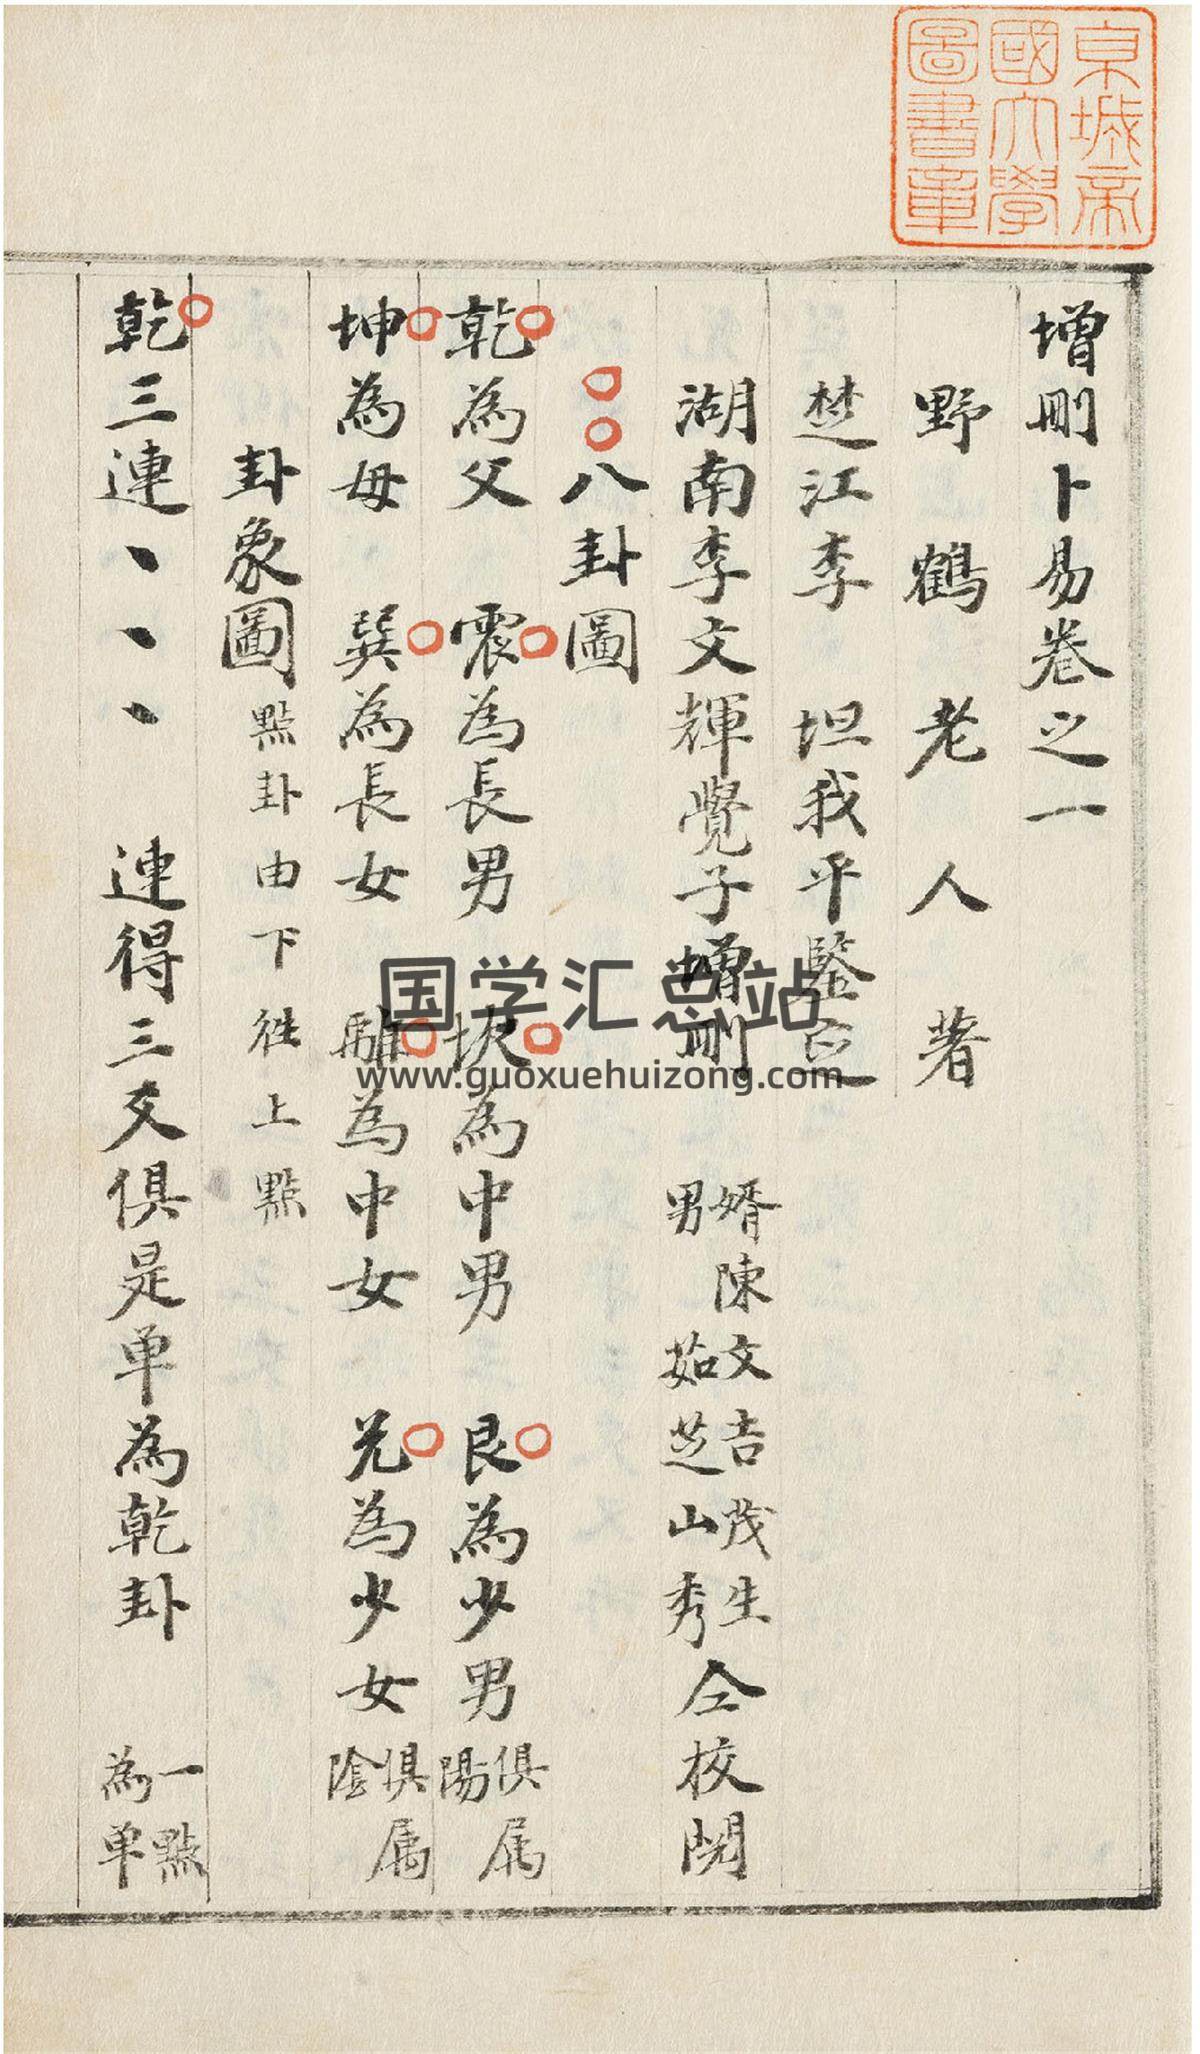 京城帝
國大學
圖書章
增刪卜易卷之一
野鶴老人著
楚江李 坦我平鑒定
湖南李文輝覺子增刪 婿陳文吉茂生 男 茹芝山秀 仝校閱
八卦圖
乾為父 震為長男 坎為中男 艮為少男 俱属陽
坤為母 巽為長女 離為中女 兌為少女 俱属陰
卦象圖 點卦由下徃上點
乾三連、、、 連得三爻俱是单為乾卦 一點為单
国学汇总站
www.guoxuehuizong.com